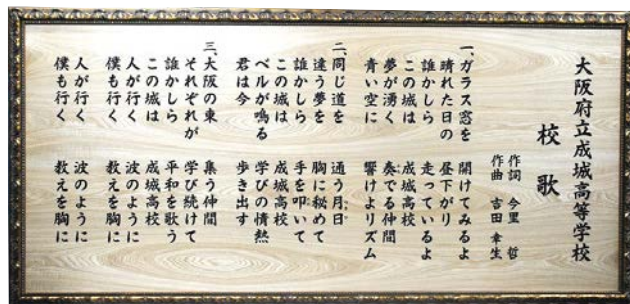 大阪府立成城高等学校
校歌
作詞 今里 哲
作曲 吉田 幸生
一、ガラス窓を 開けてみるよ
晴れた日の 昼下がり
誰かしら 走っているよ
この城は 成城高校
夢が湧く 奏でる仲間
青い空に 響けよリズム
二、同じ道を 通う月日
違う夢を 胸に秘めて
誰かしら 手を叩いて
この城は 成城高校
ベルが鳴る 学びの情熱
君は今 歩き出す
三、大阪の東 集う仲間
それぞれが 学び続けて
誰かしら 平和を歌う
この城は 成城高校
人が行く 波のように
僕も行く 教えを胸に
人が行く 波のように
僕も行く 教えを胸に